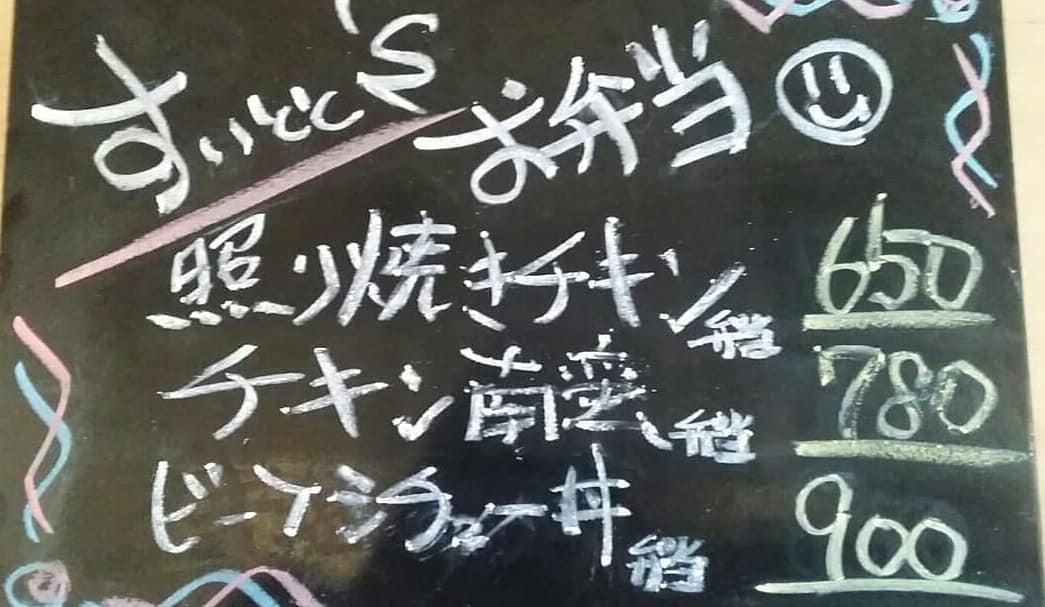 すいとと'S お弁当
照り焼きチキン弁当 650
チキン南蛮弁当 780
ビーフシチュー丼弁当 900